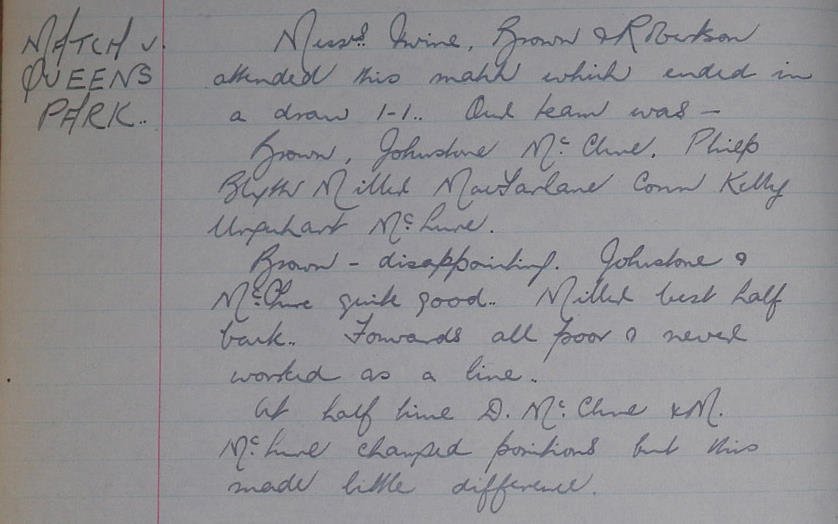 MATCH v.
QUEENS
PARK..
Messrs. Irvine, Brown & Robertson
attended this match which ended in
a draw 1-1.. Our team was —
Brown, Johnstone Mc. Clure, Philp
Blyth Miller MacFarlane Conn Kelly
Urquhart Mc. Lure.
Brown - disappointing. Johnstone &
Mc. Clure quite good.. Miller best half
back.. Forwards all poor & never
worked as a line..
At half time D. Mc. Clure & M.
Mc. Lure changed positions but this
made little difference.